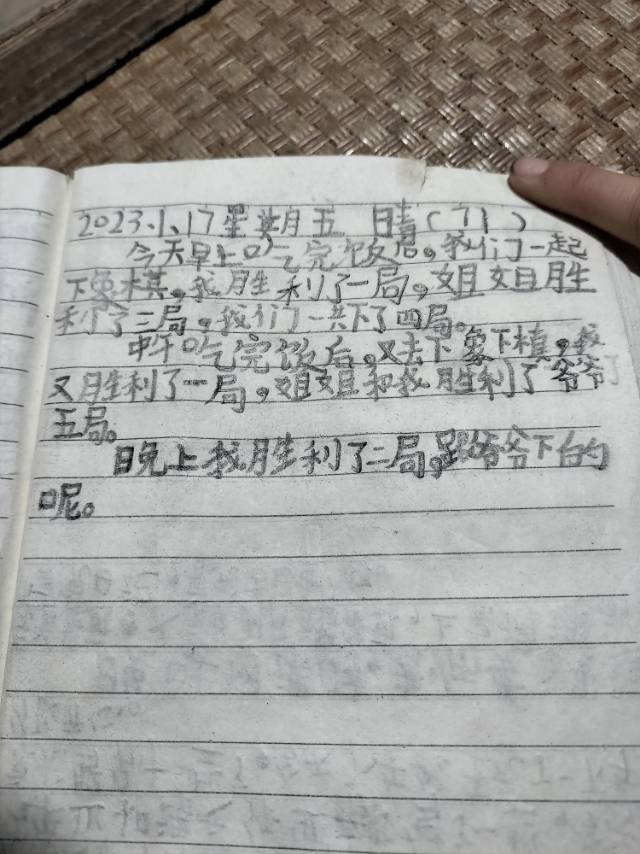 2023.1.17星期五 晴(71)
今天早上吃完饭后,我们一起
下象棋,我胜利了一局,姐姐胜
利了三局,我们一共下了四局。
中午吃完饭后,又去下象下植,我
又胜利了一局,姐姐和我胜利了爷爷了
五局。
晚上我胜利了二局,跟爷爷下台的
呢。